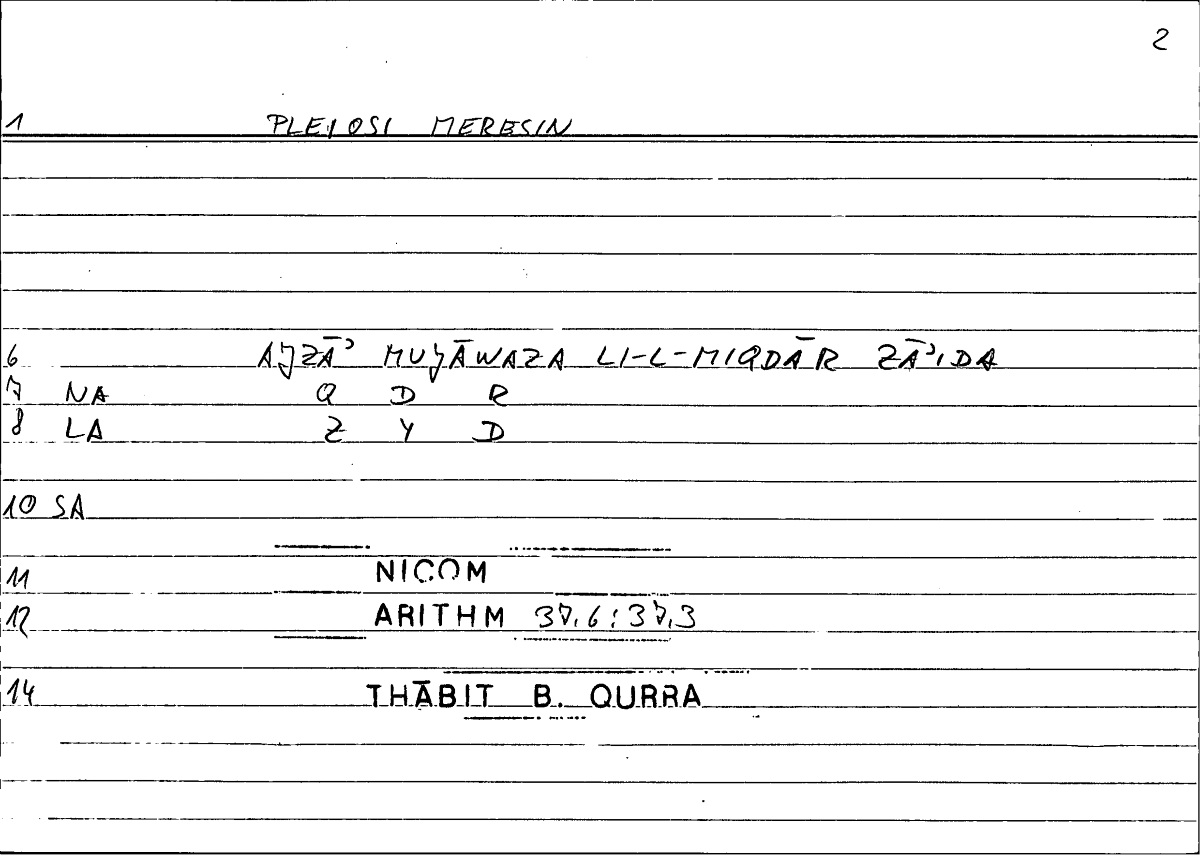 2
1 PLEIOSI MERESIN
6 AJZĀʾ MUJĀWAZA LI-L-MIQDĀR ZĀʾIDA
7 NA Q D R
8 LA Z Y D
10 SA
11 NICOM
12 ARITHM 37,6:37,3
14 THĀBIT B. QURRA